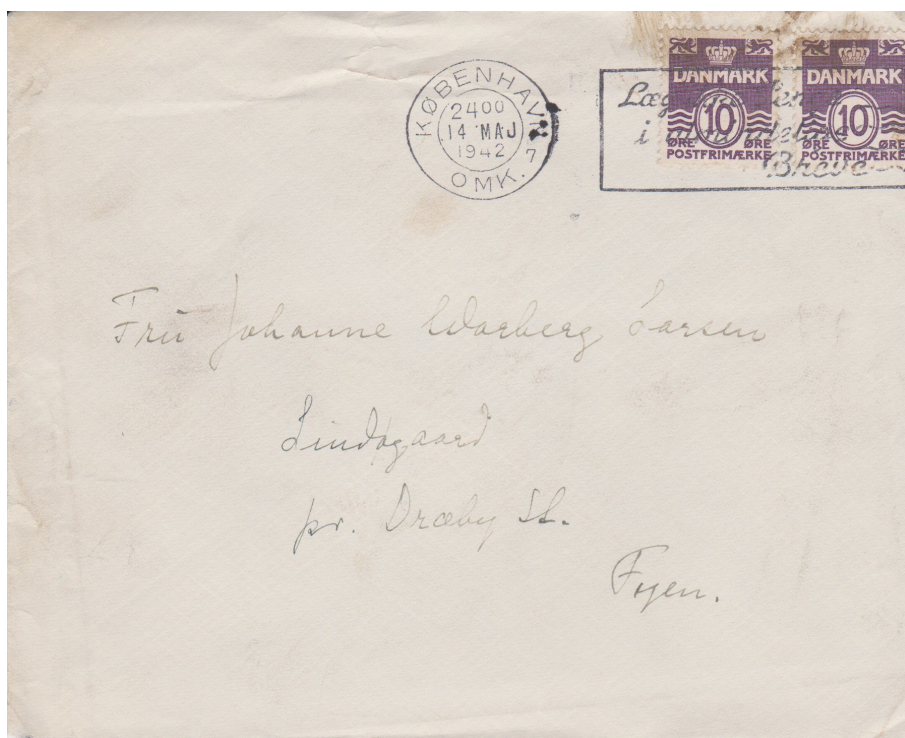 KØBENHAVN
OMK. 7
2400
14 MAJ
1942
Læg
i
Breve
DANMARK
10
ØRE ØRE
POSTFRIMÆRKE
DANMARK
10
ØRE ØRE
POSTFRIMÆRKE
Fru Johanne Warberg Larsen
Lindøgaard
pr. Dræby St.
Fyen.